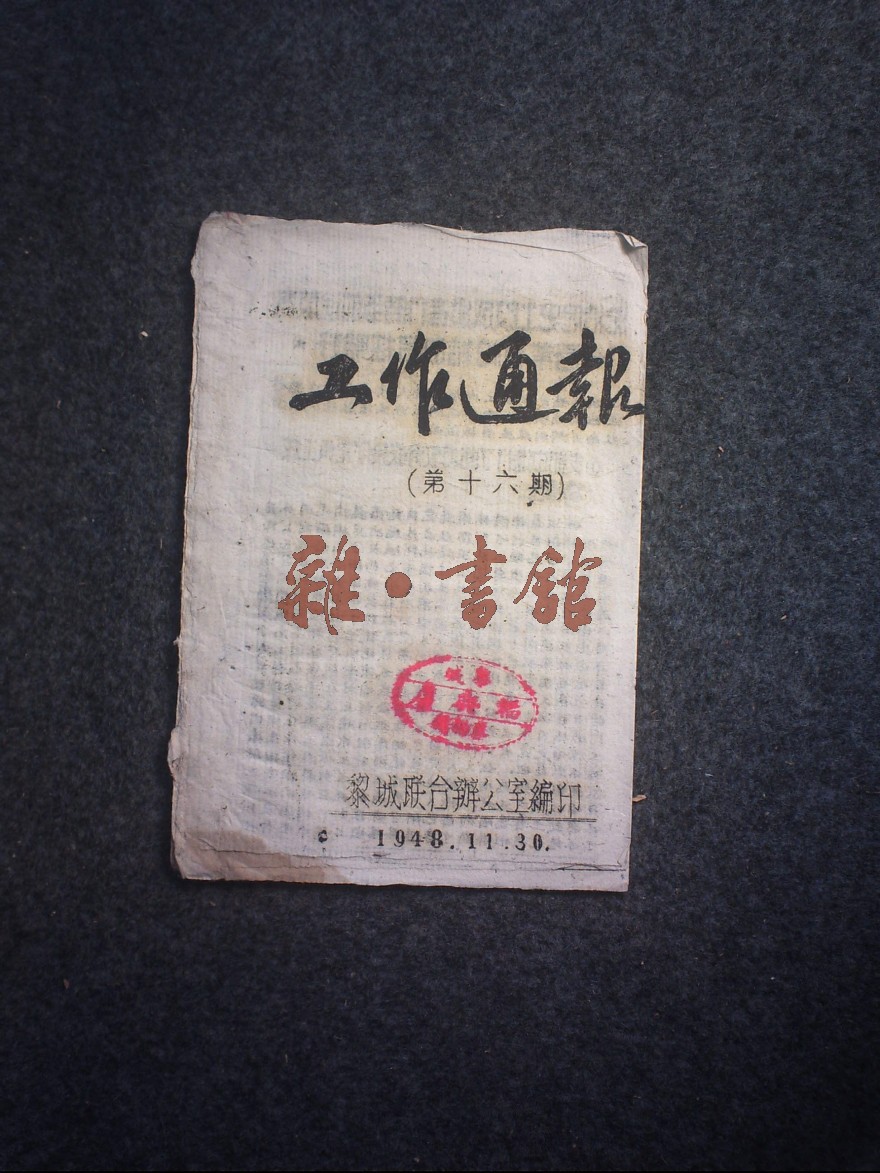 工作通報
(第十六期)
雜·書館
黎城联合辦公室編印
1948.11.30.